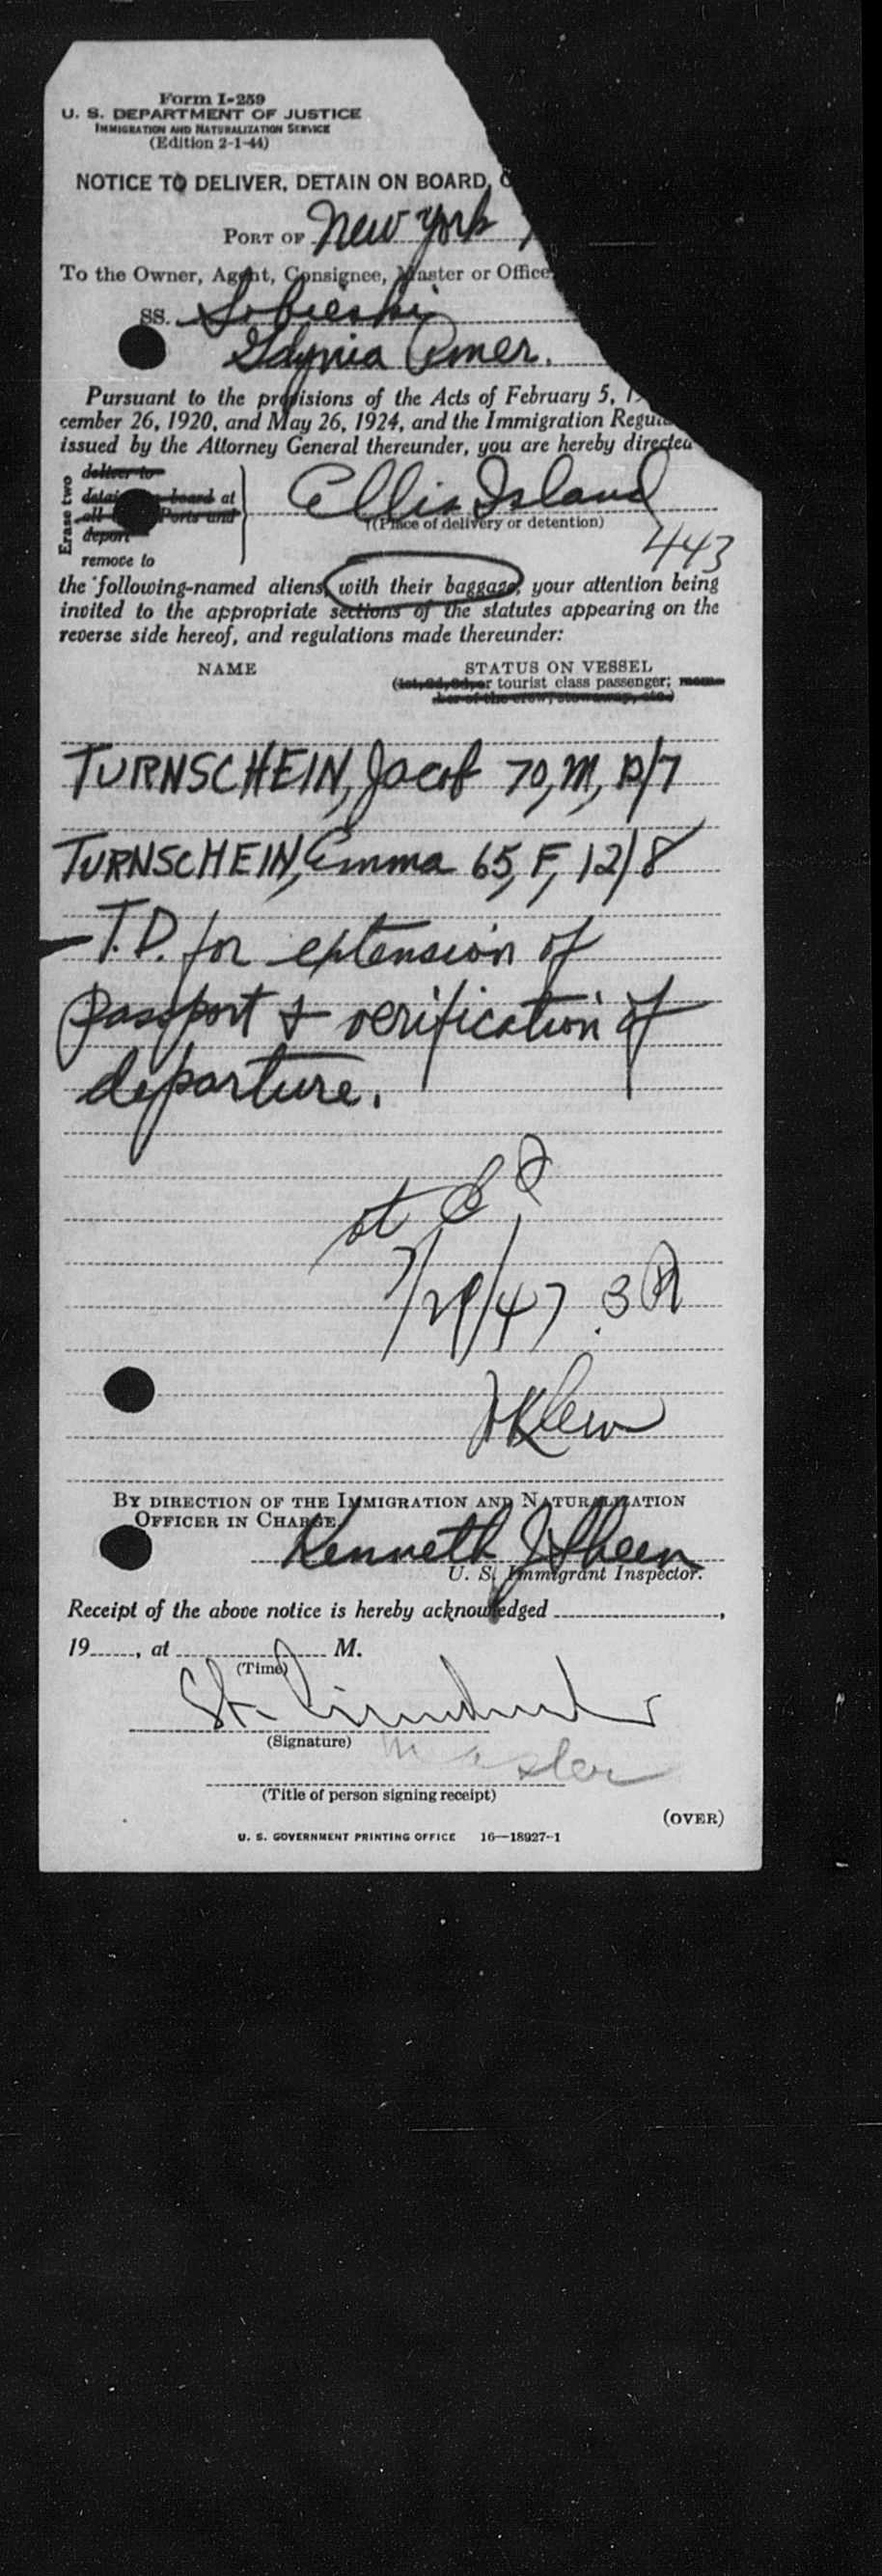 Form I-259
U. S. DEPARTMENT OF JUSTICE
IMMIGRATION AND NATURALIZATION SERVICE
(Edition 2-1-44)
NOTICE TO DELIVER, DETAIN ON BOARD,
PORT OF New York
To the Owner, Agent, Consignee, Master or Office
SS. Sobieski
Gdynia Amer.
Pursuant to the provisions of the Acts of February 5,
cember 26, 1920, and May 26, 1924, and the Immigration
issued by the Attorney General thereunder, you are hereby directed
Erase two
deliver to
board at
Ports and
deport
remove to
Ellis Island
(Place of delivery or detention)
443
the following-named aliens, with their baggage, your attention being
invited to the appropriate sections of the statutes appearing on the
reverse side hereof, and regulations made thereunder:
NAME STATUS ON VESSEL
(1st, 2d, 3d, or tourist class passenger; mem-
ber of the crew, stowaway, etc.)
TURNSCHEIN, Jacob 70, M, 12/7
TURNSCHEIN, Emma 65, F, 12/8
T.D. for extension of
passport & verification of
departure.
7/29/47 3
By direction of the Immigration and Naturalization
Officer in Charge.
Kenneth J Sheen
U. S. Immigrant Inspector.
Receipt of the above notice is hereby acknowledged ,
19 , at M.
(Time)
(Signature)
Master
(Title of person signing receipt)
(OVER)
U. S. GOVERNMENT PRINTING OFFICE 16—18927-1